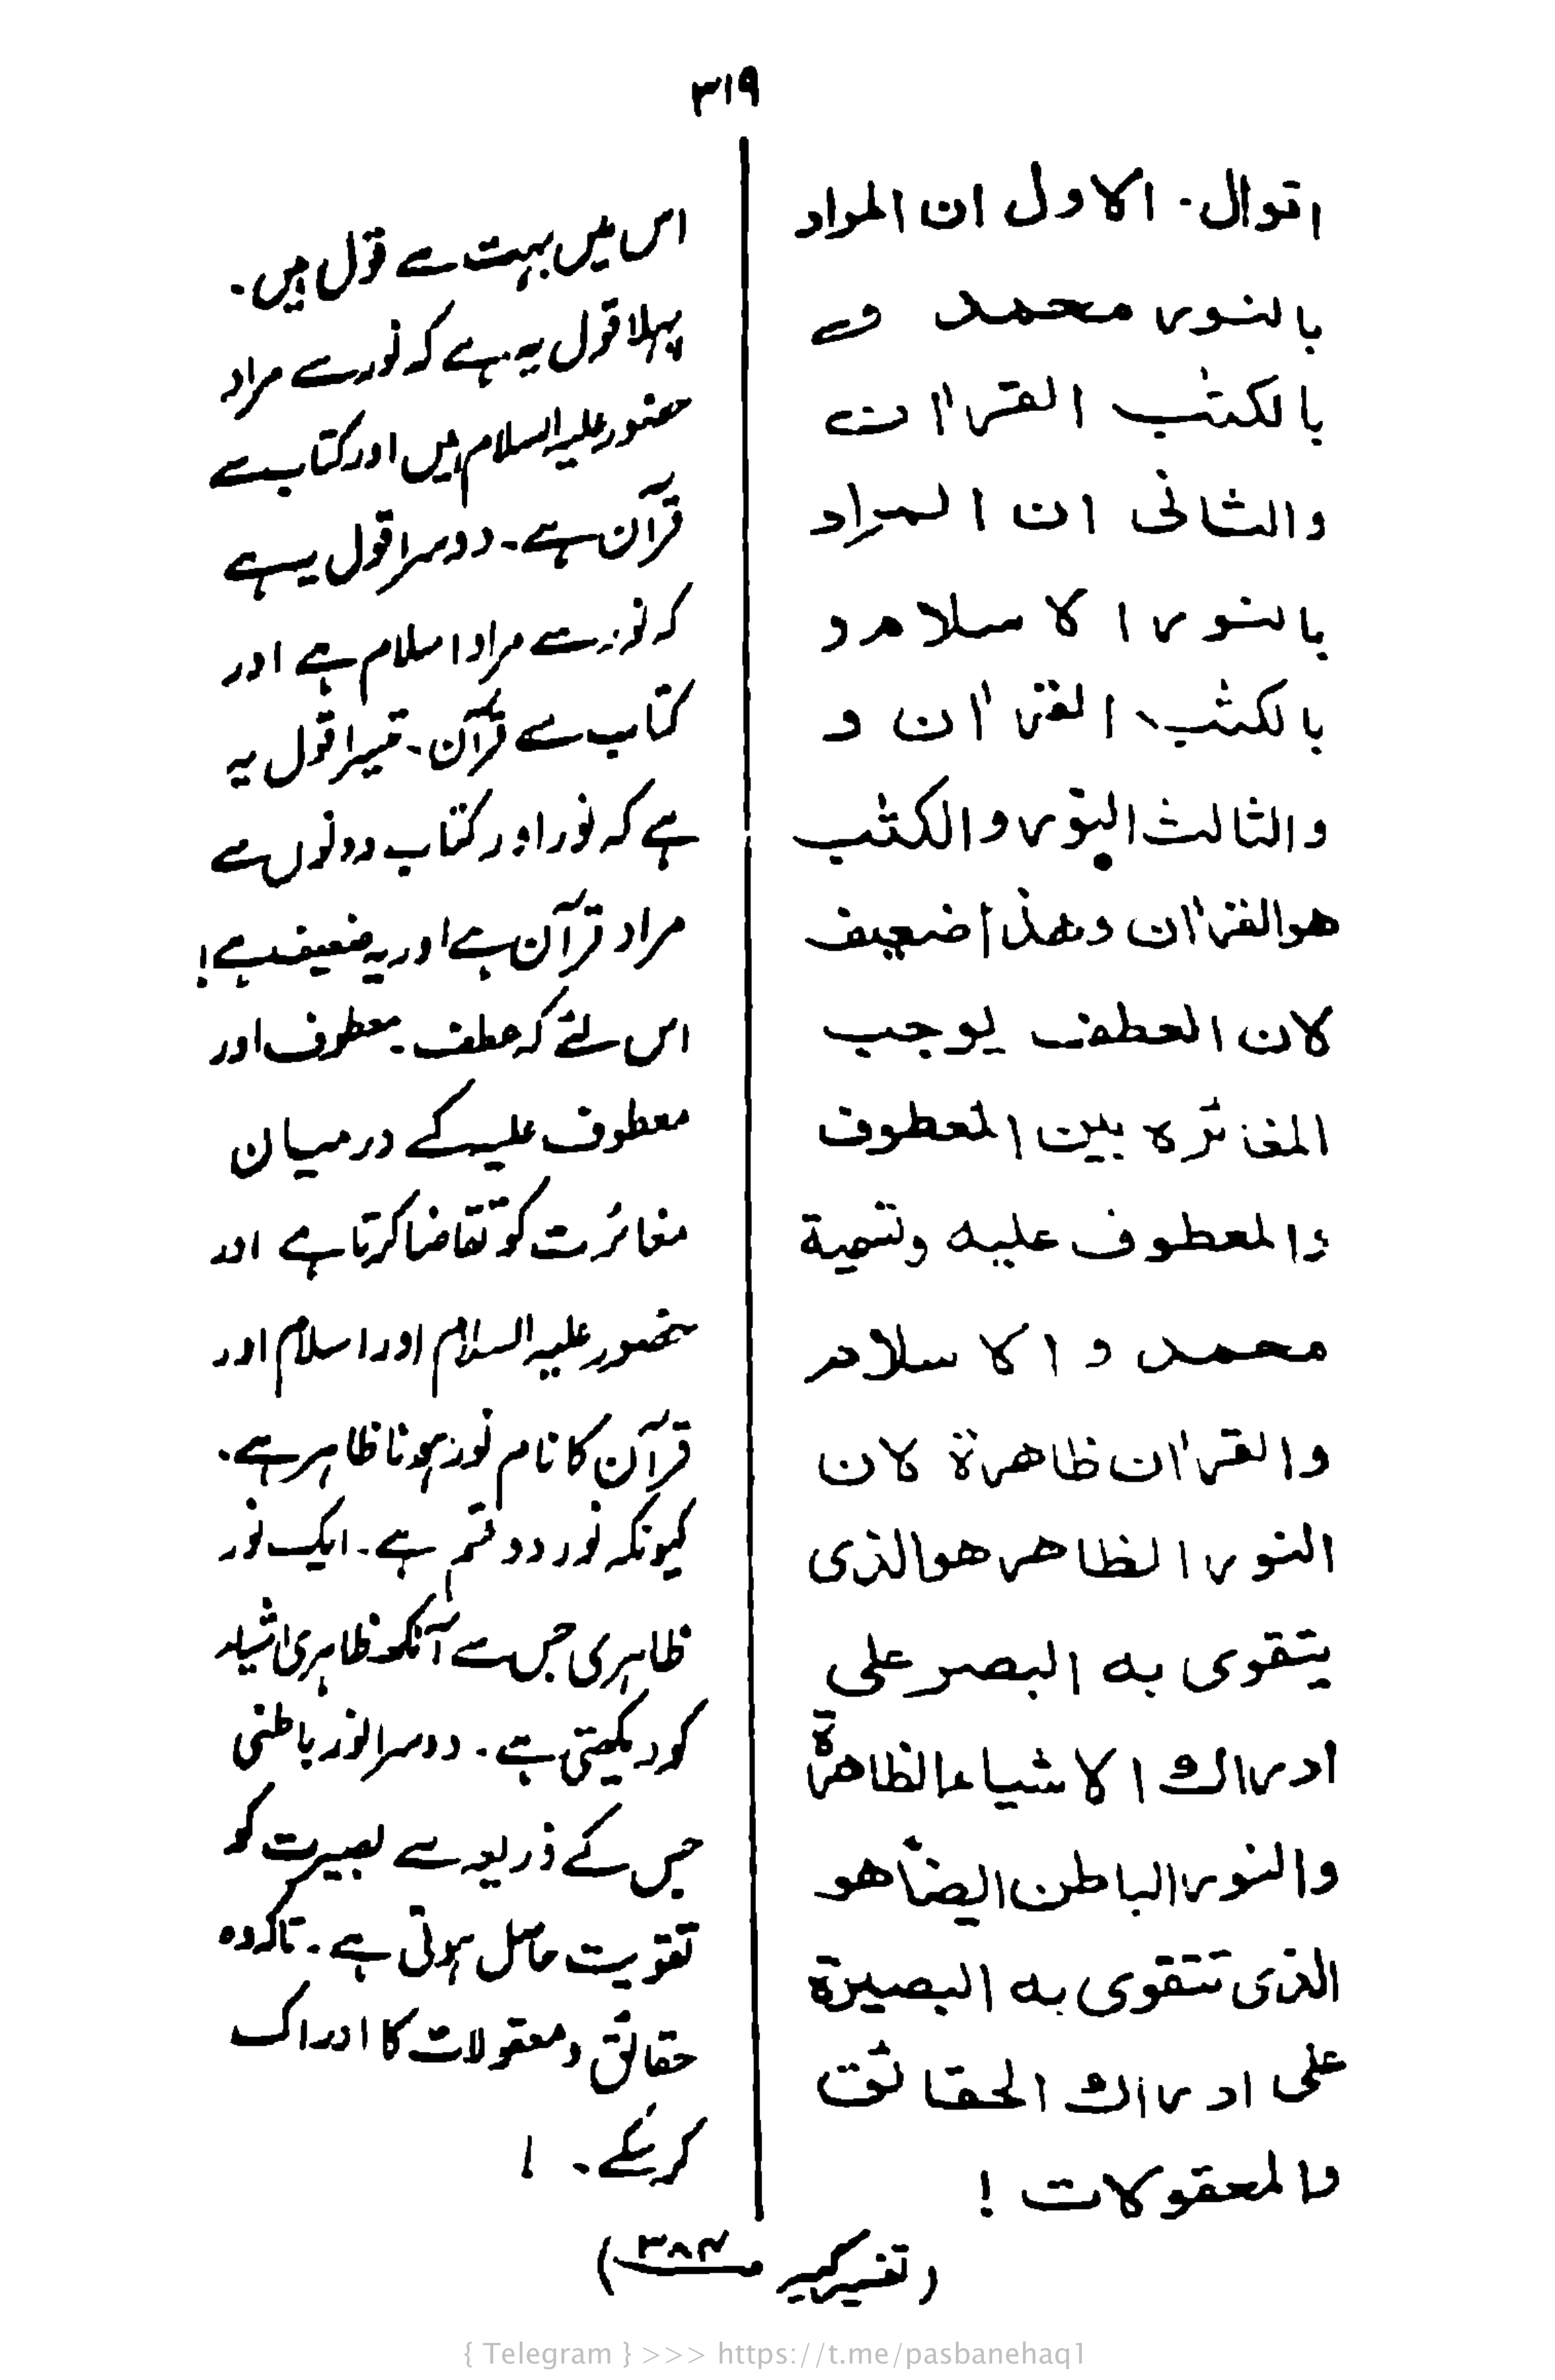 ۳۱۹
اقوال۔ الاول ان المراد
بالنور محمد و
بالکتٰب القراٰن
والثانی ان المراد
بالنور الاسلام و
بالکتٰب القراٰن و
والثالث النور والکتٰب
هوالقراٰن وهذا ضعیف
لان العطف یوجب
المغائرہ بین المعطوف
والمعطوف علیه وتسمیة
محمد والاسلام
والقراٰن ظاهرة لان
النور الظاهر هوالذی
یتقوی به البصر علی
ادراك الاشیاء الظاهرة
والنور الباطن ایضًا هو
الذی تتقوی به البصیرة
علی ادراك الحقائق
والمعقولات !
اس میں بہت سے قول ہیں۔
پہلا قول یہ ہے کہ نور سے مراد
حضور علیہ السلام ہیں اور کتاب سے
قرآن ہے۔ دوسرا قول یہ ہے
کہ نور سے مراد اسلام ہے اور
کتاب سے قرآن۔ تیسرا قول یہ
ہے کہ نور اور کتاب دونوں سے
مراد قرآن ہے اور یہ ضعیف ہے!
اس لئے کہ عطف۔ معطوف اور
معطوف علیہ کے درمیان
مغائرت کو تقاضا کرتا ہے اور
حضور علیہ السلام اور اسلام اور
قرآن کا نام نور ہونا ظاہر ہے۔
کیونکہ نور دو قسم ہے۔ ایک نور
ظاہری جس سے آنکھ ظاہری اشیاء
کو دیکھتی ہے۔ دوسرا نور باطنی
جس کے ذریعہ سے بصیرت کو
تقویت حاصل ہوتی ہے۔ تاکہ وہ
حقائق و معقولات کا ادراک
کر سکے۔ !
(تفسیر کبیر ص۳۸۴)
{ Telegram } >>> https://t.me/pasbanehaq1